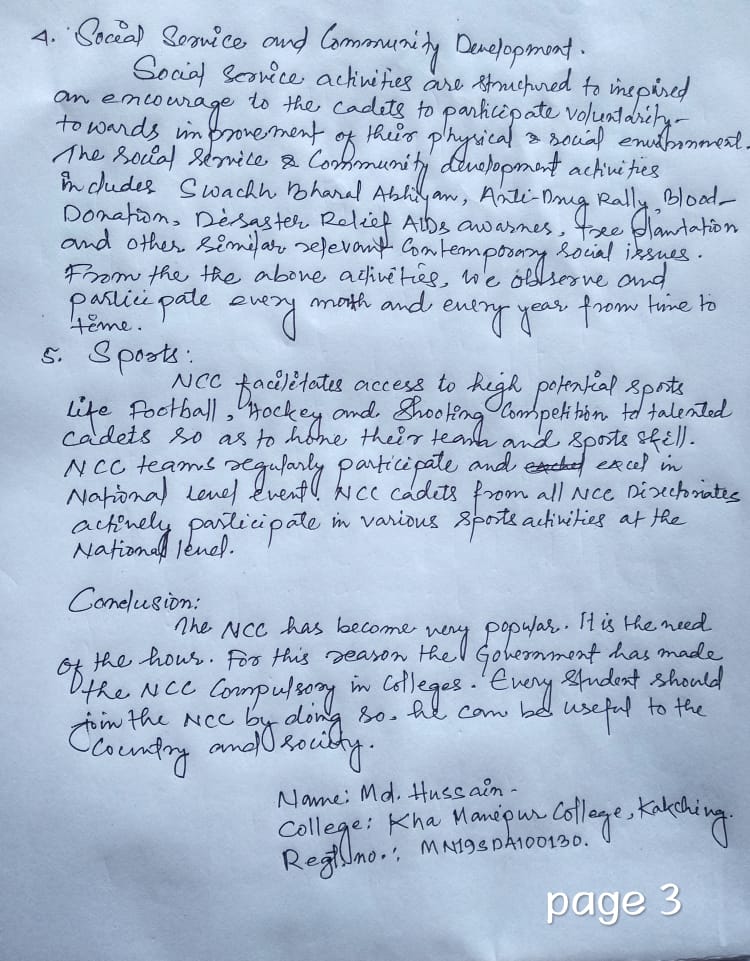 4. Social Service and Community Development.
Social Service activities are structured to inspired
an encourage to the cadets to participate voluntarity-
towards improvement of their physical & social environment.
The Social Service & Community development activities
includes Swachh Bharat Abhiyan, Anti-Drug Rally, Blood-
Donation, Desaster Relief AIDs awarnes, tree plantation
and other similar relevant Contemporary Social issues.
From the the above activities, we observe and
participate every month and every year from time to
time.
5. Sports:
NCC facilitates access to high potential sports
life Football, Hockey and Shooting Competition to talented
cadets so as to hone their team and sports skill.
NCC teams regularly participate and excel in
National Level Event. NCC cadets from all NCC Directoriates
actively participate in various Sports activities at the
National level.
Conclusion:
The NCC has become very popular. It is the need
of the hour. For this reason the Government has made
the NCC Compulsory in Colleges. Every Student should
join the NCC by doing so. he can be useful to the
Country and society.
Name: Md. Hussain -
College: Kha Manipur College, Kakching.
Regtl. no.: MN19SDA100130.
page 3